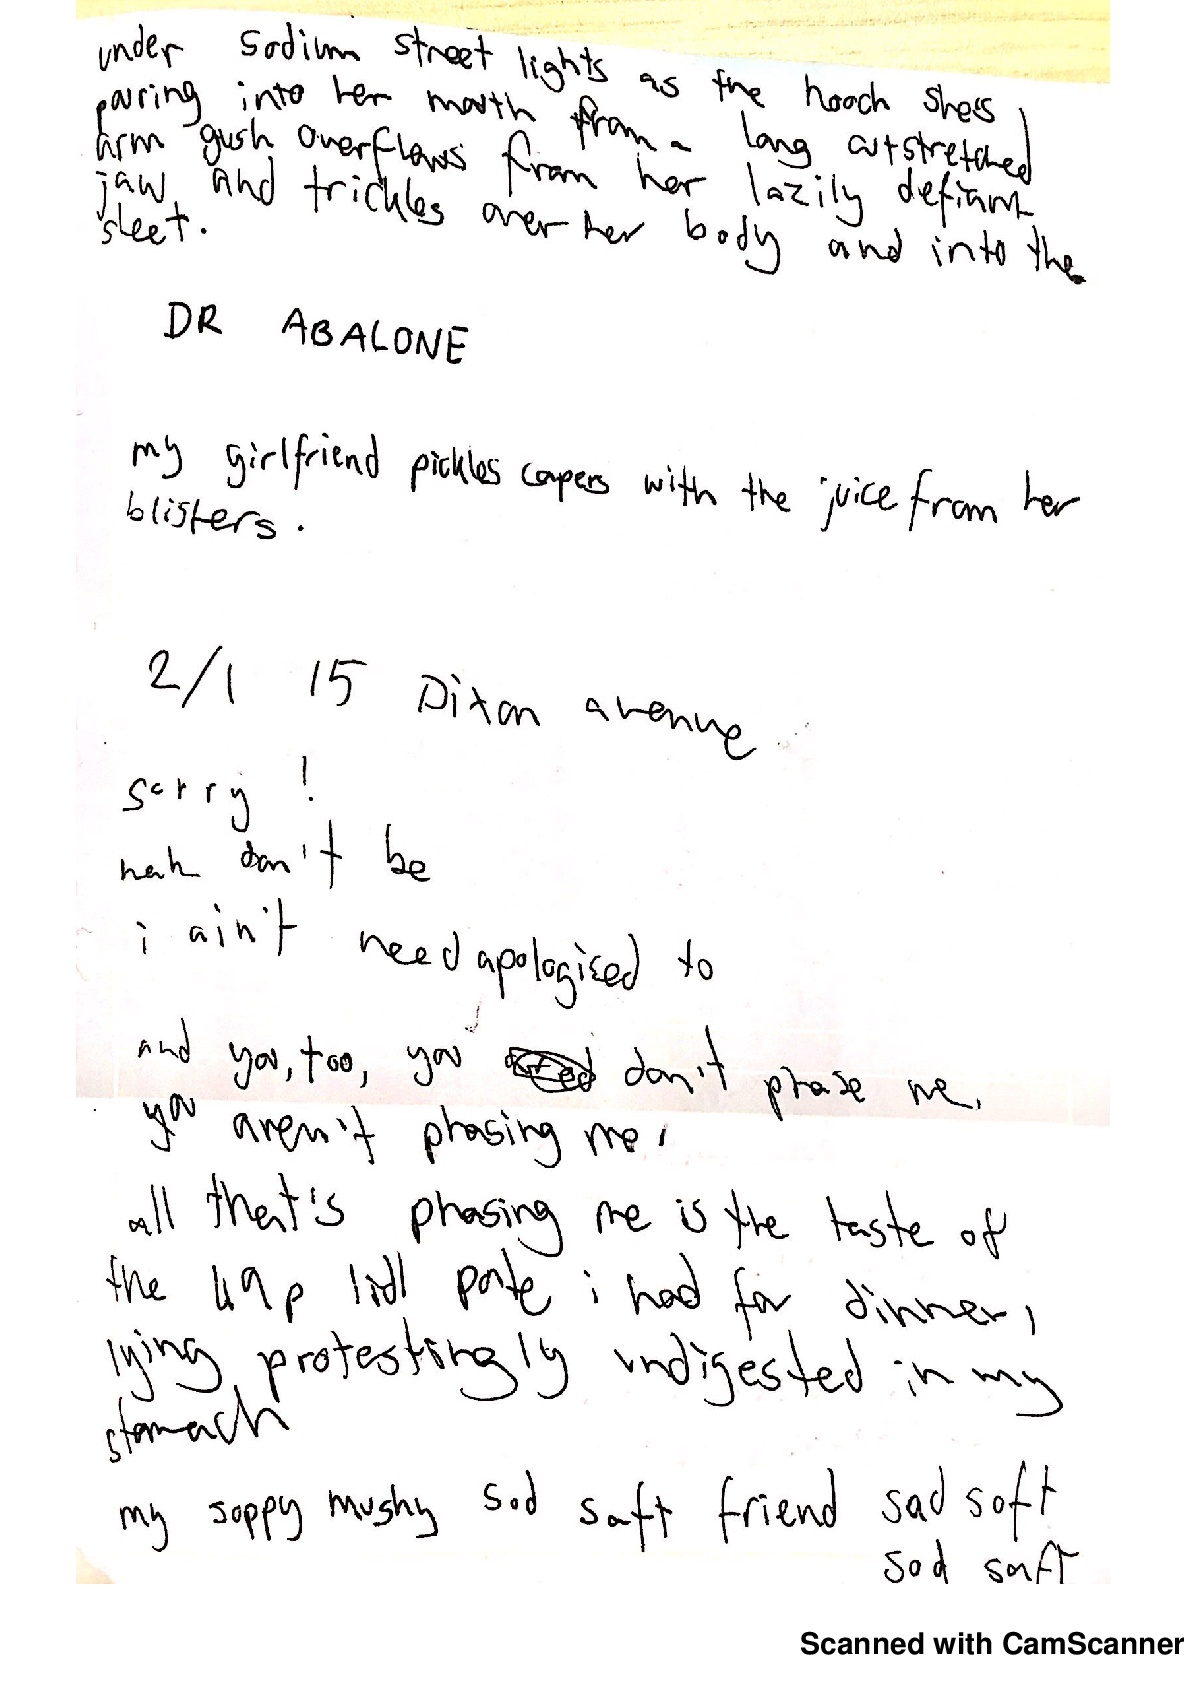 under sodium street lights as the hooch shes
pouring into her mouth from a long outstretched
arm gush overflows from her lazily defiant
jaw and trickles over her body and into the
sleet.
DR ABALONE
my girlfriend pickles capers with the juice from her
blisters.
2/1 15 Dixon avenue
sorry!
nah don't be
i ain't need apologised to
and you, too, you don't phase me,
you aren't phasing me,
all that's phasing me is the taste of
the 49p lidl pate i had for dinner,
lying protestingly undigested in my
stomach
my soppy mushy sod soft friend sad soft
sod soft
Scanned with CamScanner